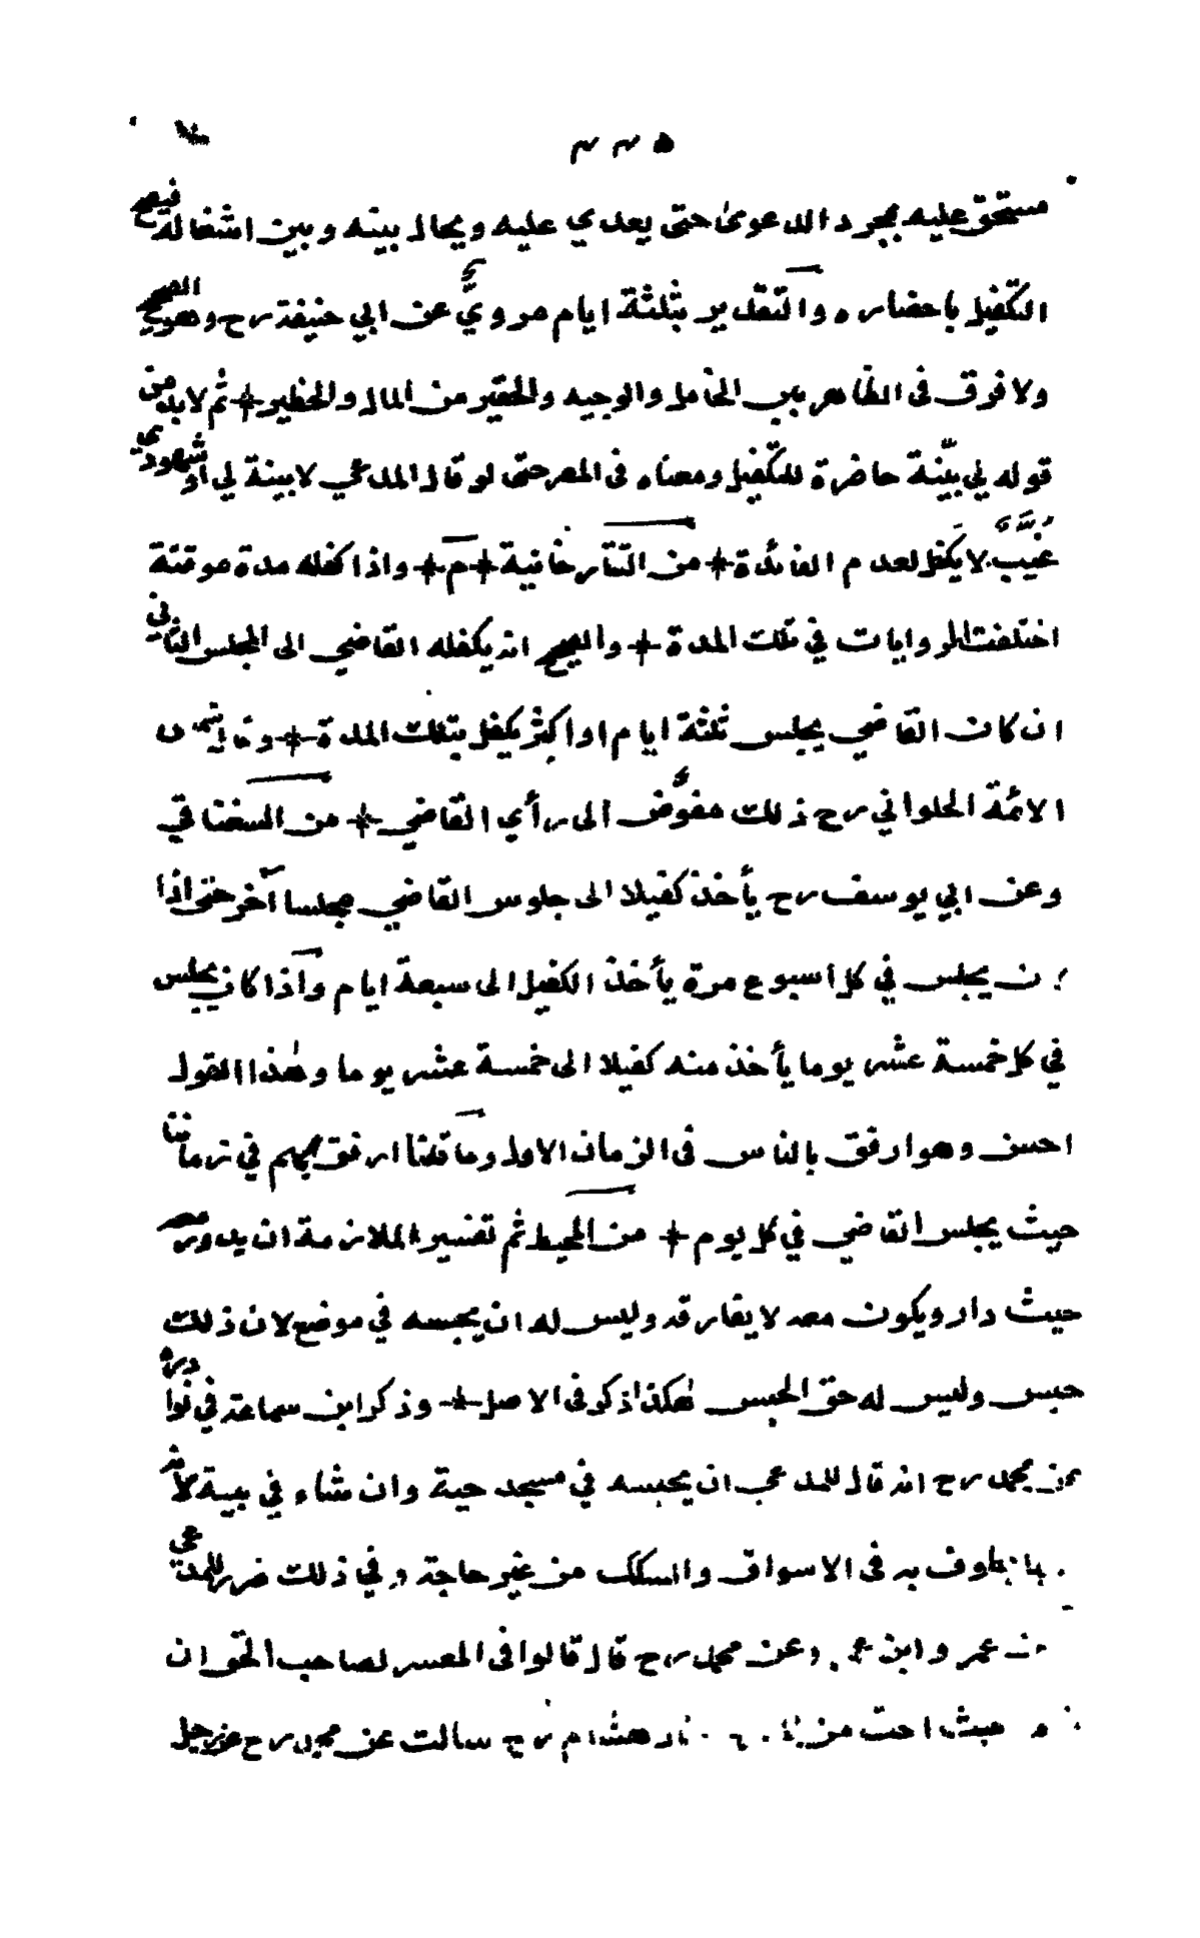 ٢٢٥
مستحق عليه بمجرد الدعوىٰ حتى يعدي عليه ويحال بينه وبين اشغاله فيصح
التكفيل باحضاره والتقدير بثلثة ايام مرويٌّ عن ابي حنيفة رح وهو الصحيح
ولا فرق فى الظاهر بين الخامل والوجيه والحقير من المال والخطير + ثم لا بد من
قوله لي بيّنة حاضرة للتكفيل ومعناه فى المصر حتى لو قال المدعي لا بينة لي او شهودي
غُيَّبٌ لا يكفل لعدم الفائدة + من التتارخانية + م + واذا كفله مدة موقتة
اختلفت الروايات في تلك المدة + والصحيح انه يكفله القاضي الى المجلس الثاني
ان كان القاضي يجلس ثلثة ايام او اكثر يكفل بتلك المدة + وقال شمس
الائمة الحلواني رح ذلك مفوّضٌ الى رأي القاضي + من السغناقي
وعن ابي يوسف رح يأخذ كفيلا الى جلوس القاضي مجلسا آخر حتى اذا
ن يجلس في كل اسبوع مرة يأخذ الكفيل الى سبعة ايام واذا كان يجلس
في كل خمسة عشر يوما يأخذ منه كفيلا الى خمسة عشر يوما وهٰذا القول
احسن وهو ارفق بالناس فى الزمان الاول وما قلنا ارفق بهم في زماننا
حيث يجلس القاضي في كل يوم + من المحيط ثم تفسير الملازمة ان يدور معه
حيث دار ويكون معه لا يفارقه وليس له ان يحبسه في موضع لان ذلك
حبس وليس له حق الحبس هٰكذا ذكر فى الاصل + وذكر ابن سماعة في نوادره
عن محمد رح انه قال للمدعي ان يحبسه في مسجد حيه وان شاء في بيته لانه
يطوف به فى الاسواق والسكك من غير حاجة وفي ذلك ضرر للمدعي
عمر وابن وعن محمد رح قال قالوا فى المعسر لصاحب الحق ان
حيث احب من هشام رح سالت عن محمد رح عن رجل